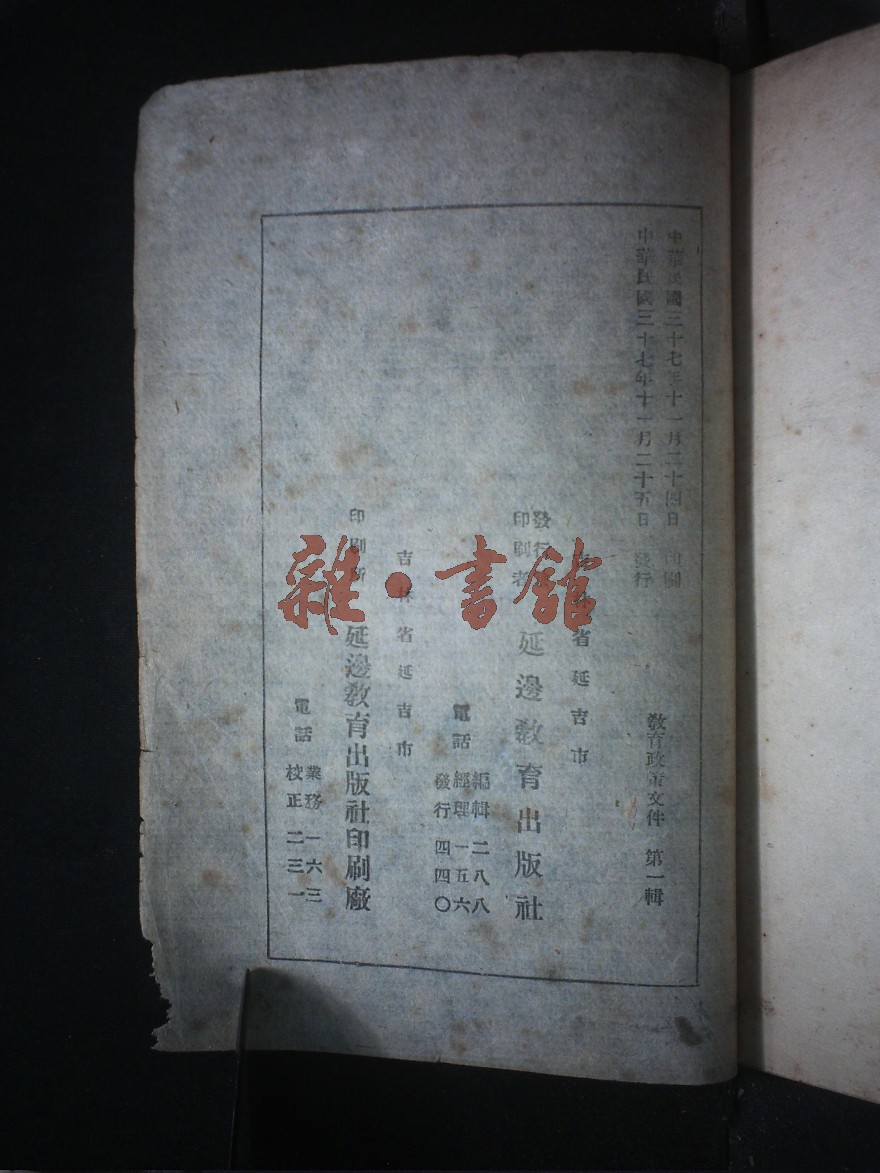 中華民國三十七年十一月二十四日 印刷
中華民國三十七年十一月二十五日 發行
教育政策文件 第一輯
吉林省延吉市
發行
印刷者 延邊教育出版社
電話
編輯 二八八
經理 一五六
發行 四四〇
吉林省延吉市
印刷所 延邊教育出版社印刷廠
電話
業務 一六三
校正 二三一
雜·書館